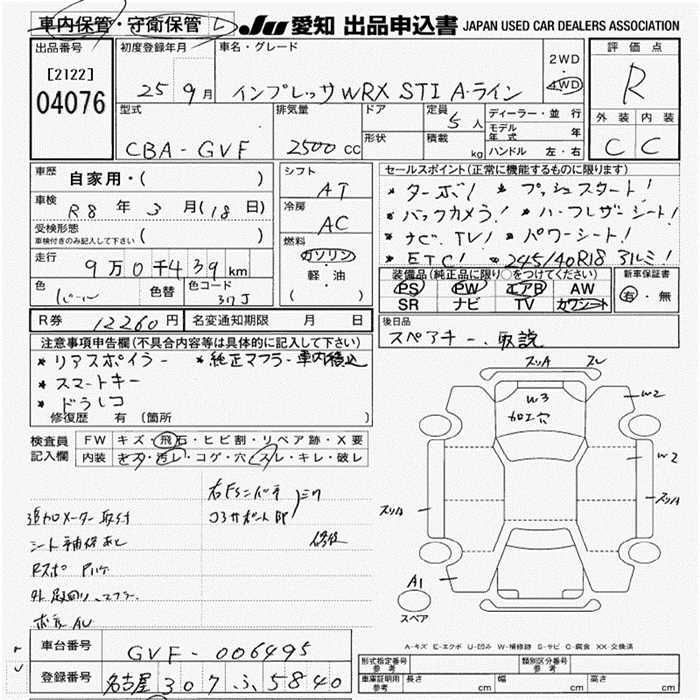 車内保管・守衛保管
JU 愛知 出品申込書 JAPAN USED CAR DEALERS ASSOCIATION
出品番号
[2122]
04076
初度登録年月
25 9月
車名・グレード
インプレッサWRX STI A・ライン
2WD
・
4WD
評価点
R
外装 内装
C C
型式
CBA-GVF
排気量
2500 cc
ドア
形状
定員
5人
積載
kg
ディーラー・並行
モデル年式 年
ハンドル 左・右
車歴 自家用・( )
車検 R8年 3月(18日)
受検形態
車検付きのみ記入して下さい ( )
走行 9万0千439km
色 色替 色コード
37J
シフト
AT
冷房
AC
燃料
ガソリン
軽・油
( )
セールスポイント(正常に機能するものに限ります)
* ターボ! * プッシュスタート!
* バックカメラ! * ハーフレザーシート!
* ナビ、TV! * パワーシート!
* ETC! * 245/40R18 アルミ!
装備品(純正品に限り○をつけてください)
PS PW エアB AW
SR ナビ TV カワシート
新車保証書
有・無
R券 12260円 名変通知期限 月 日
後日品
スペアキー、取説
注意事項申告欄(不具合内容等は具体的に記入して下さい)
* リアスポイラー * 純正マフラー車内積込
* スマートキー
* ドラレコ
修復歴 有 (箇所 )
検査員
記入欄
FW キズ・飛石・ヒビ割・リペア跡・X要
内装 キズ・汚レ・コゲ・穴・スレ・キレ・破レ
追加メーター取付
コアサポート
シート
スリA スレ
W3
加工穴
W2
W2
スリA
スリA
A1
スペア
A-キズ E-エクボ U-凹み W-補修跡 S-サビ C-腐食 XX-交換済
車台番号 GVF-006495
登録番号 名古屋 307 ふ 5840
型式指定番号
参考
類別区分番号
参考
車庫証明用
参考
長さ cm 幅 cm 高さ cm